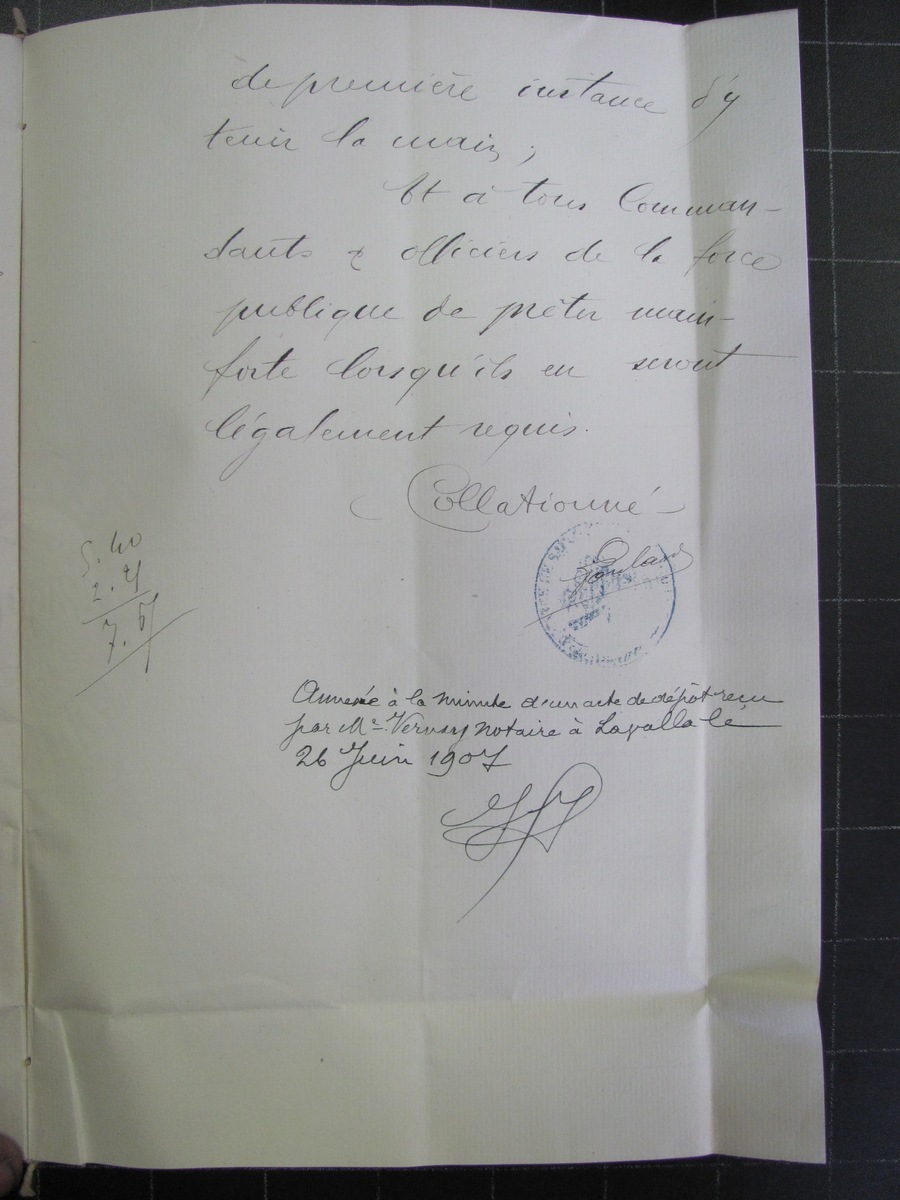 de première instance d'y
tenir la main ;
Et à tous Comman-
dants & officiers de la force
publique de prêter main-
forte lorsqu'ils en seront
légalement requis.
Collationné
5.40
2.
7.
Annexée à la minute d'un acte de dépôt reçu
par Me. Vernay notaire à Lapalla le
26 Juin 1907